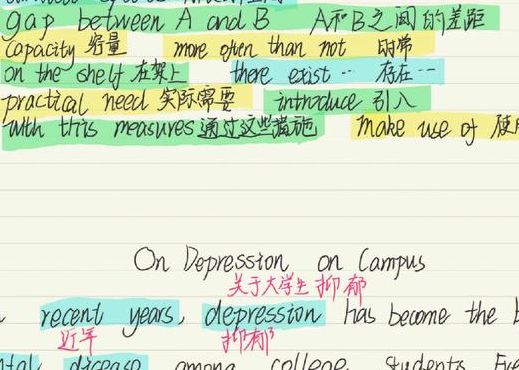 gap between A and B A和B之间的差距
capacity 容量 more often than not 时常
on the shelf 在架上 there exist … 存在…
practical need 实际需要 introduce 引入
with this measures 通过这些措施 make use of 使用
On Depression on Campus
关于大学生抑郁
recent years, depression has become the
近年 抑郁
disease among college students